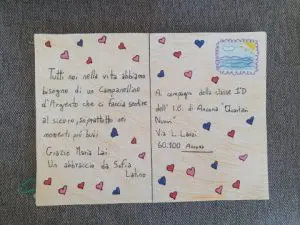 Tutti noi nella vita abbiamo
bisogno di un Campanellino
d'Argento che ci faccia sentire
al sicuro, soprattutto nei
momenti più bui.
Grazie Maria Lai
Un abbraccio da Sofia
Latino
Ai compagni della classe 5ªD
dell' I.C. di Ancona "Quartieri
Nuovi"
Via L. Lanzi
60.100 Ancona